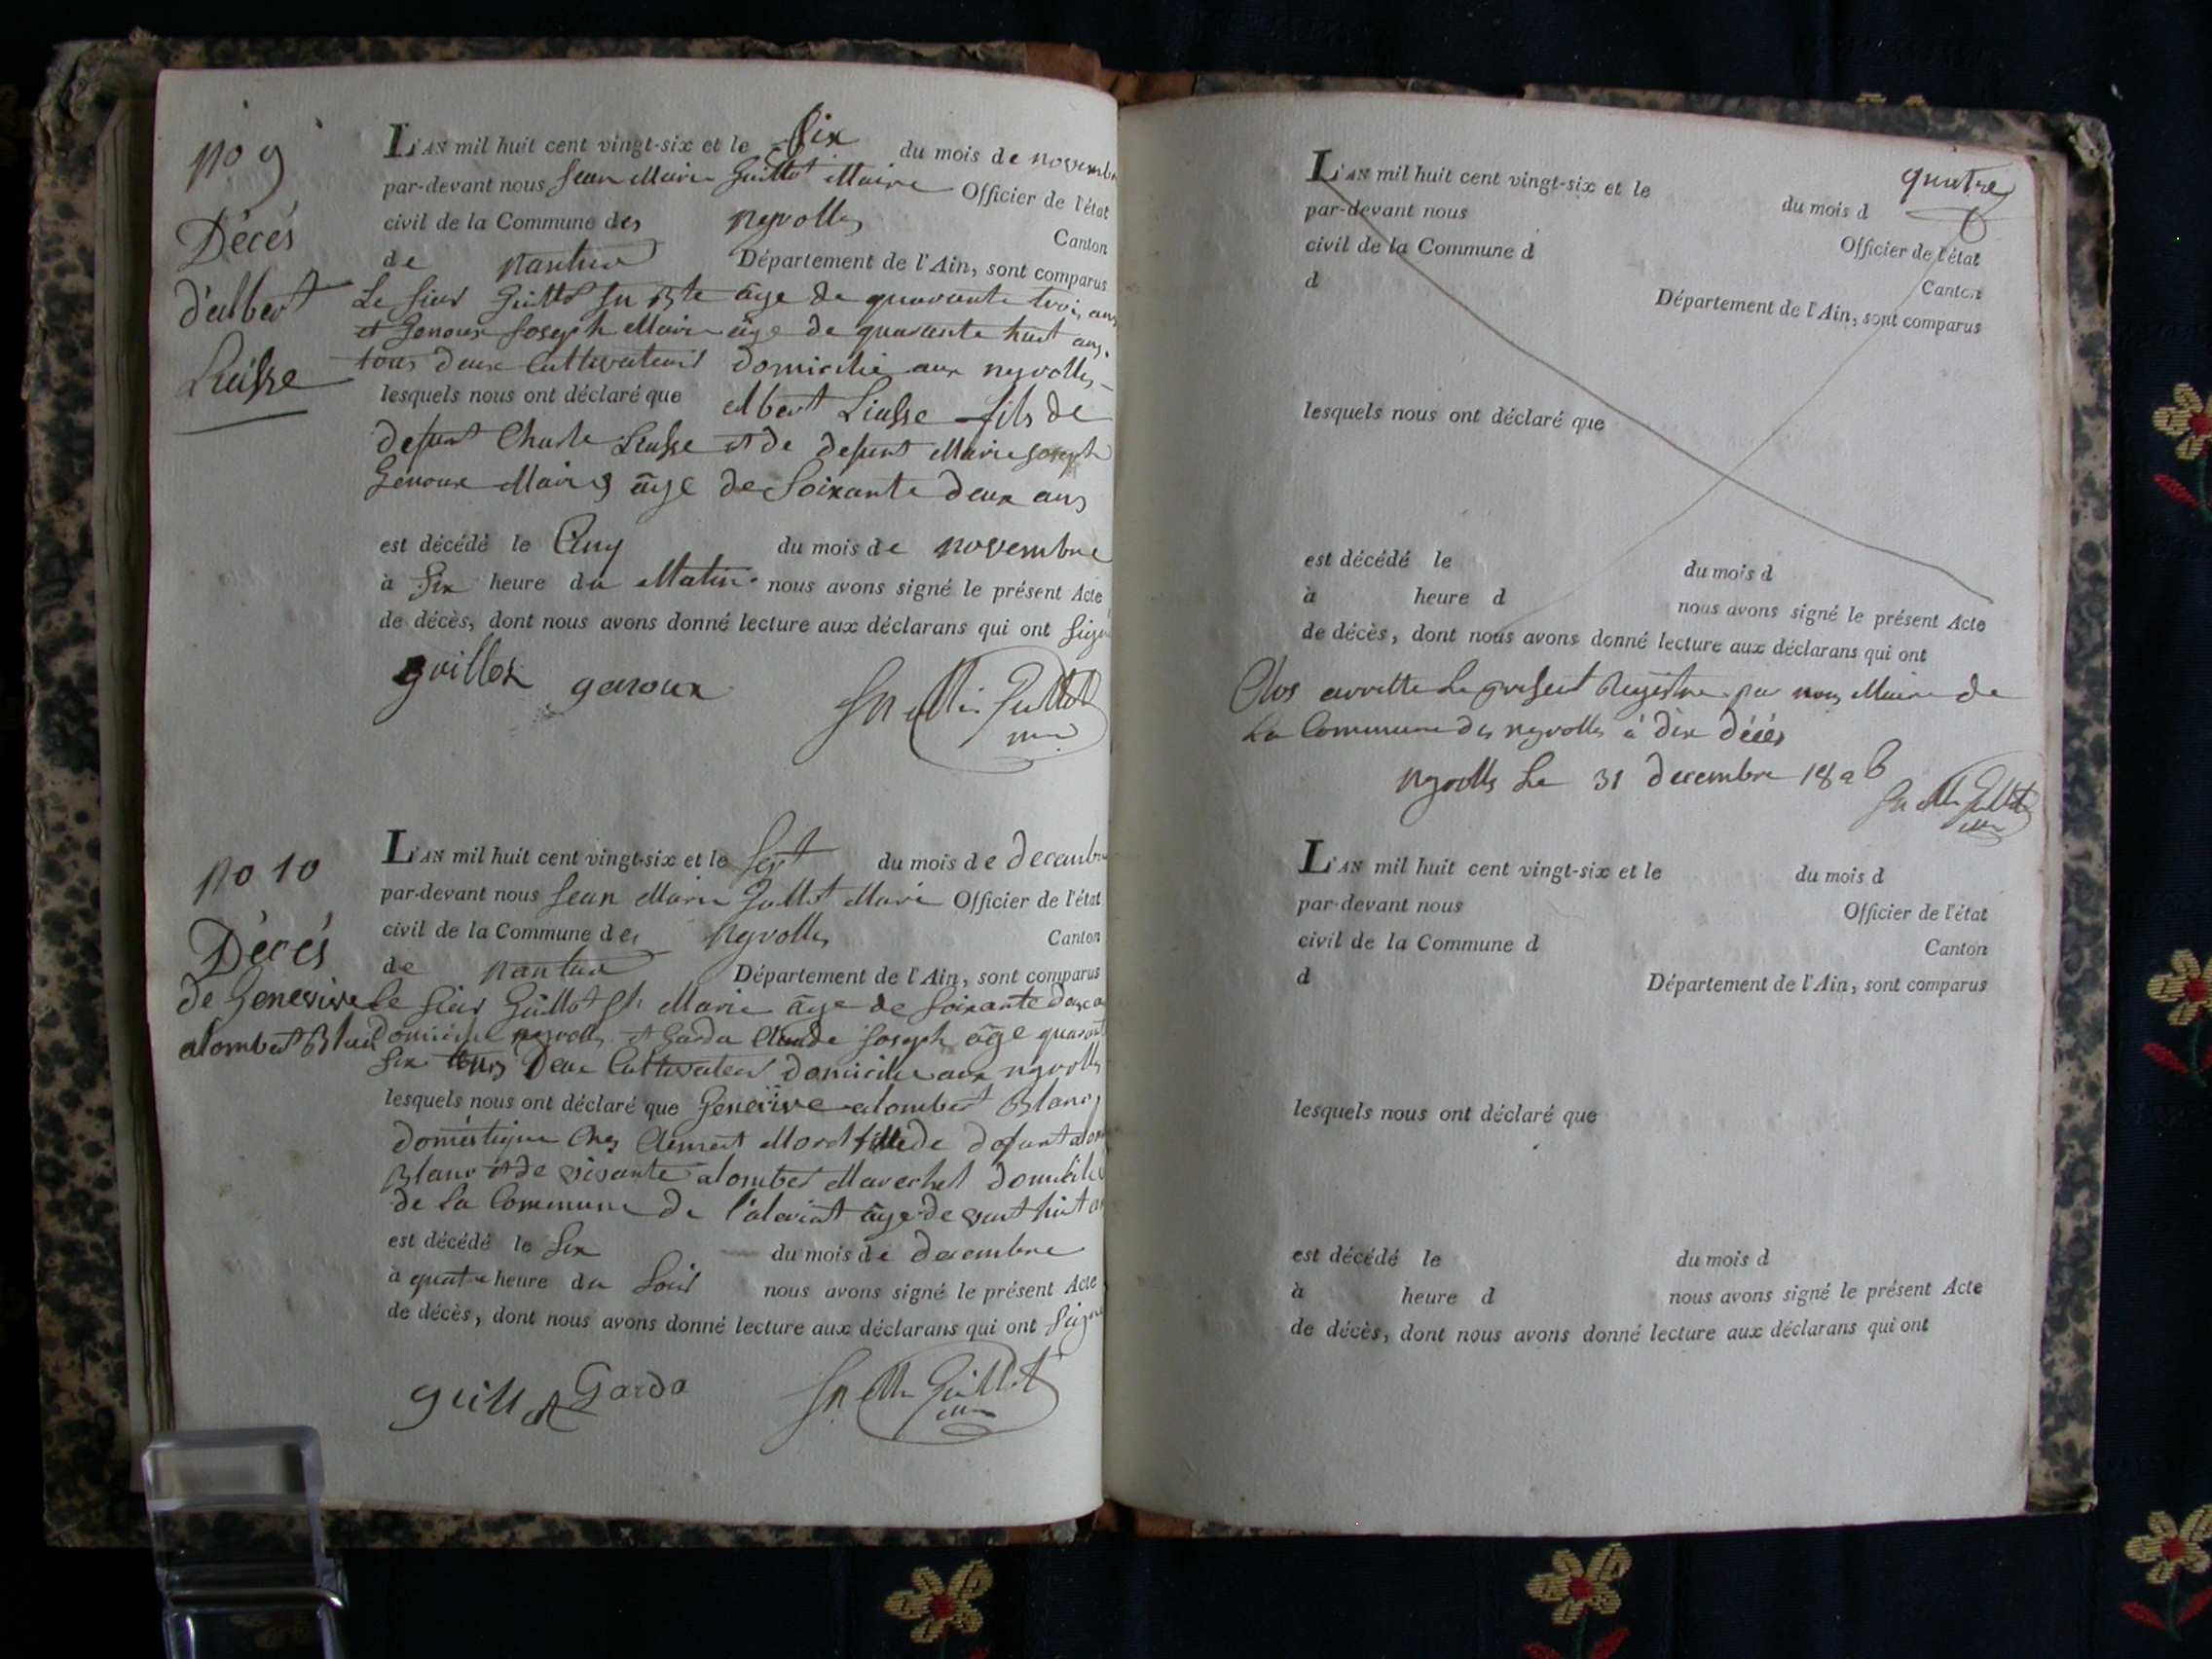 no 9
Décés
d'albert
Liasse
L'AN mil huit cent vingt-six et le six du mois de novembre
par-devant nous Jean Marie Guillot Maire Officier de l'état
civil de la Commune des neyrolles Canton
de nantua Département de l'Ain, sont comparus
Le sieur Guillot Jn Bte âge de quarante trois ans
et Genoux Joseph Marie âge de quarante huit ans
tous deux Cultivateurs domicilié aux neyrolles
lesquels nous ont déclaré que albert Liasse fils de
defunt Charle Liasse et de defunt Marie Joseph
Genoux Marié âge de Soixante deux ans
est décédé le Cinq du mois de novembre
à Six heure du Matin nous avons signé le présent Acte
de décès, dont nous avons donné lecture aux déclarans qui ont signé
guillot genoux Jn Mie Guillot
no 10
Décés
de Genevieve
alombert Blanc
L'AN mil huit cent vingt-six et le Sept du mois de decembre
par-devant nous Jean Marie Guillot Maire Officier de l'état
civil de la Commune des neyrolles Canton
de nantua Département de l'Ain, sont comparus
Le sieur Guillot Marie âge de soixante
Domicilié neyrolles et Garda Claude Joseph âge quarante
six Deux Cultivateur domicilié aux neyrolles
lesquels nous ont déclaré que Genevieve alombert Blanc
domestique Chez Clement fille de defunt
Blanc et de vivante alombert Marechal domicilié
de La Commune de âge de vint huit
est décédé le Six du mois de decembre
à quatre heure du Soir nous avons signé le présent Acte
de décès, dont nous avons donné lecture aux déclarans qui ont signé
guillot Garda Jn Mie Guillot
quatre
L'AN mil huit cent vingt-six et le du mois d
par-devant nous Officier de l'état
civil de la Commune d Canton
d Département de l'Ain, sont comparus
lesquels nous ont déclaré que
est décédé le du mois d
à heure d nous avons signé le présent Acte
de décès, dont nous avons donné lecture aux déclarans qui ont
Clos arretté Le present Registre par nous Maire de
La Commune des neyrolles à dix décés
neyrolles Le 31 decembre 1826
Jn Mie Guillot
L'AN mil huit cent vingt-six et le du mois d
par-devant nous Officier de l'état
civil de la Commune d Canton
d Département de l'Ain, sont comparus
lesquels nous ont déclaré que
est décédé le du mois d
à heure d nous avons signé le présent Acte
de décès, dont nous avons donné lecture aux déclarans qui ont